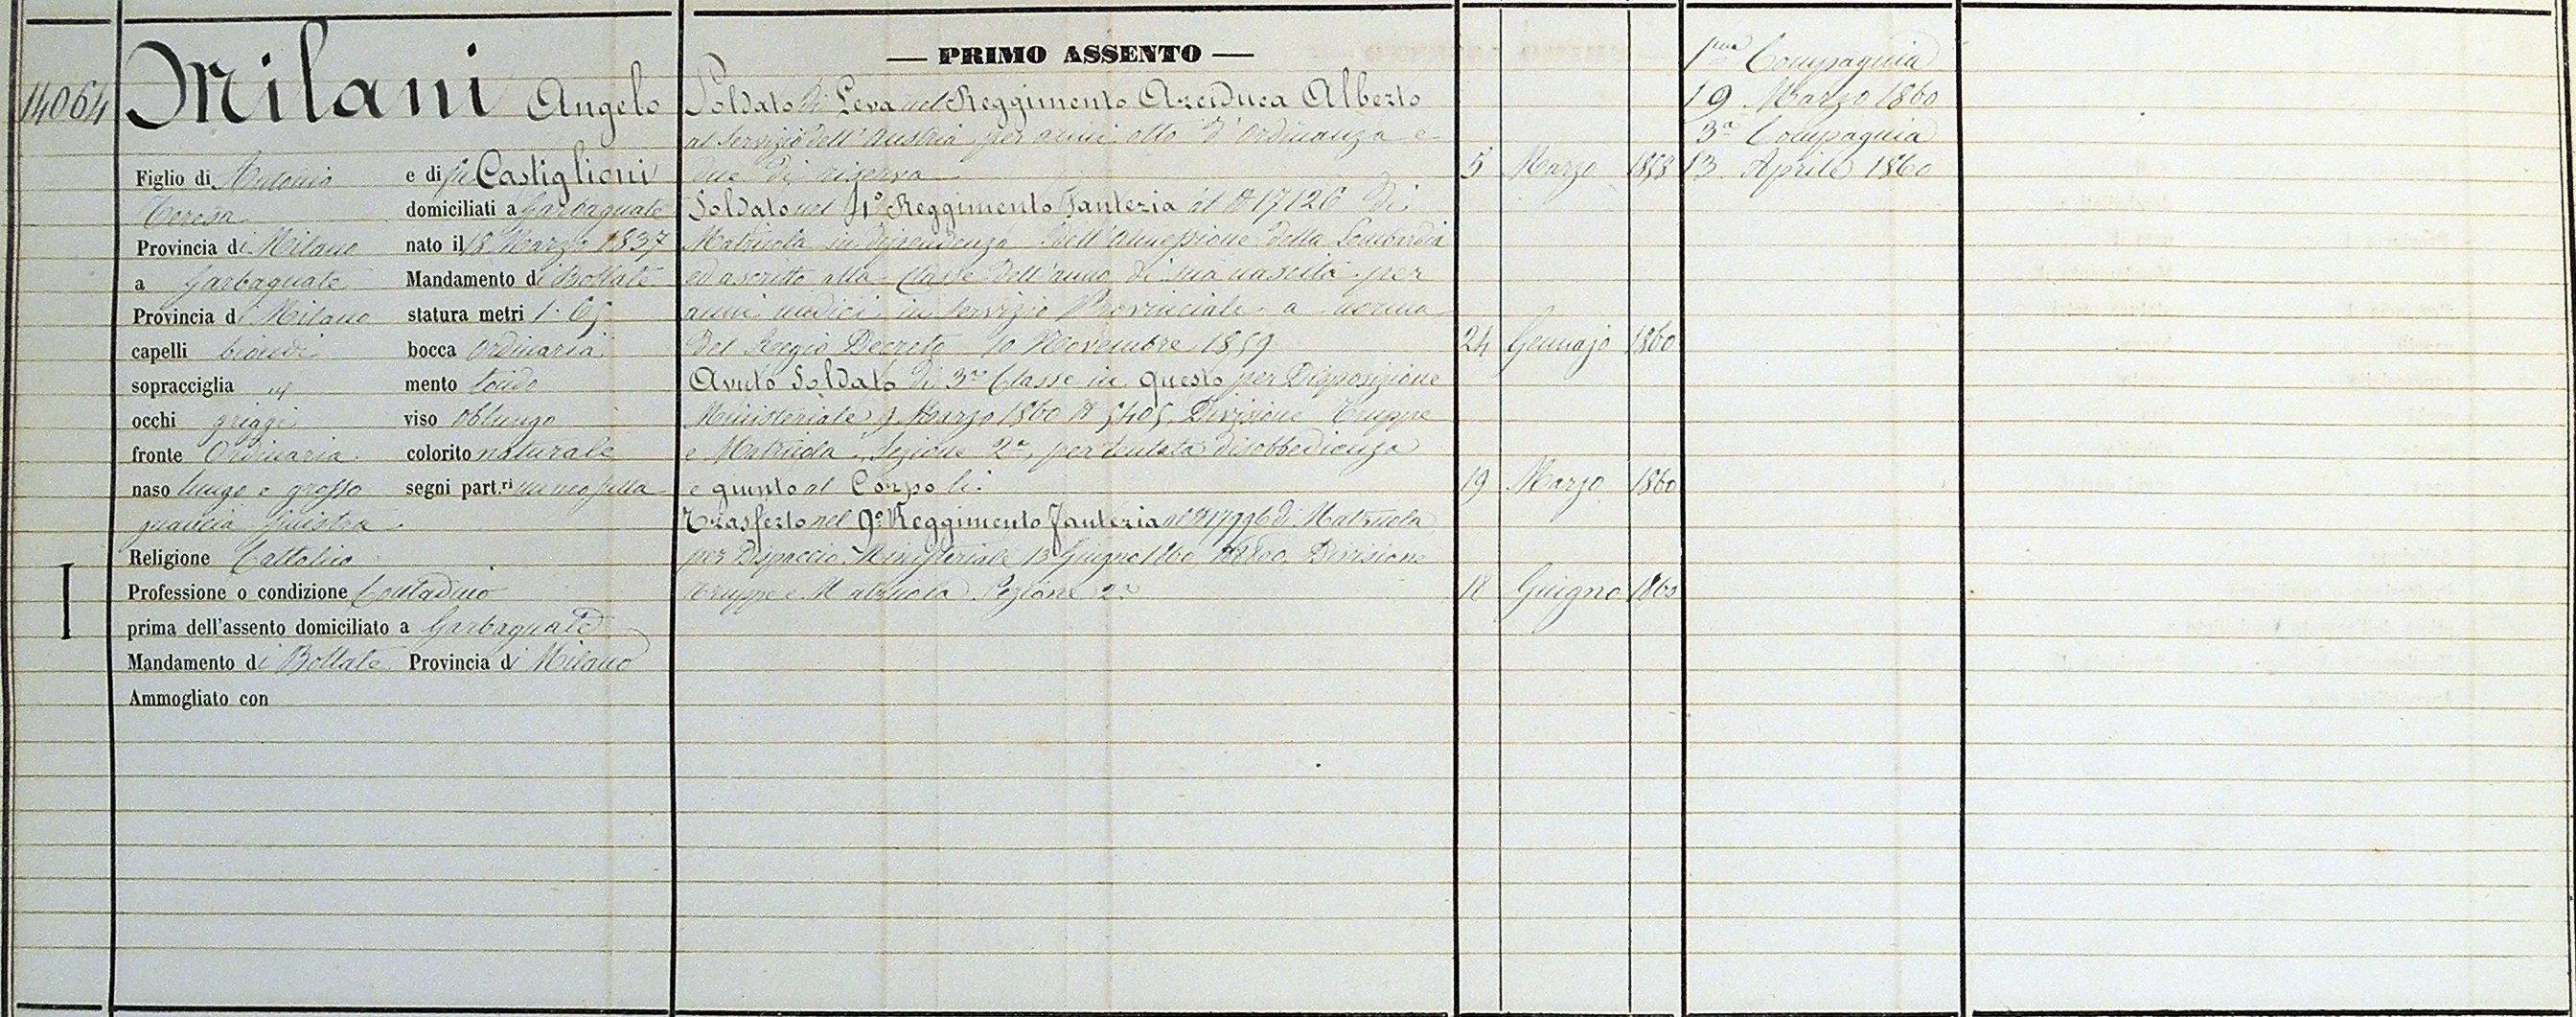 14064
Milani Angelo
Figlio di Antonio e di fu Castiglioni
Teresa domiciliati a Garbagnate
Provincia di Milano nato il 18 Marzo 1837
a Garbagnate Mandamento di Bollate
Provincia di Milano statura metri 1. 65
capelli biondi bocca ordinaria
sopracciglia id mento tondo
occhi griggi viso oblungo
fronte Ordinaria colorito naturale
naso lungo e grosso segni part.ri un neo sulla
guancia sinistra.
Religione Cattolica
I
Professione o condizione Contadino
prima dell'assento domiciliato a Garbagnate
Mandamento di Bollate Provincia di Milano
Ammogliato con
— PRIMO ASSENTO —
Soldato di Leva nel Reggimento Arciduca Alberto
al Servizio dell'Austria per anni otto d'ordinanza e
due di riserva 5 Marzo 1858
Soldato nel Reggimento Fanteria al N 17126 di
Matricola in dipendenza dell'annessione della Lombardia
ed ascritto alla Classe dell'anno di sua nascita per
anni undici in servizio Provinciale a norma
del Regio Decreto 10 Novembre 1859 24 Gennajo 1860
Avuto Soldato di 3a Classe in questo per Disposizione
Ministeriale 9 Marzo 1860 N 5405, Divisione Truppe
e Matricola, Sezione 2a, per tentata disobbedienza
e giunto al Corpo li. 19 Marzo 1860
Trasferto nel 9o Reggimento Fanteria al N 17996 di Matricola
per Dispaccio Ministeriale 13 Giugno 1860 Divisione
Truppe e Matricola Sezione 2a 18 Giugno 1860
1ma Compagnia
19 Marzo 1860
3a Compagnia
13 Aprile 1860